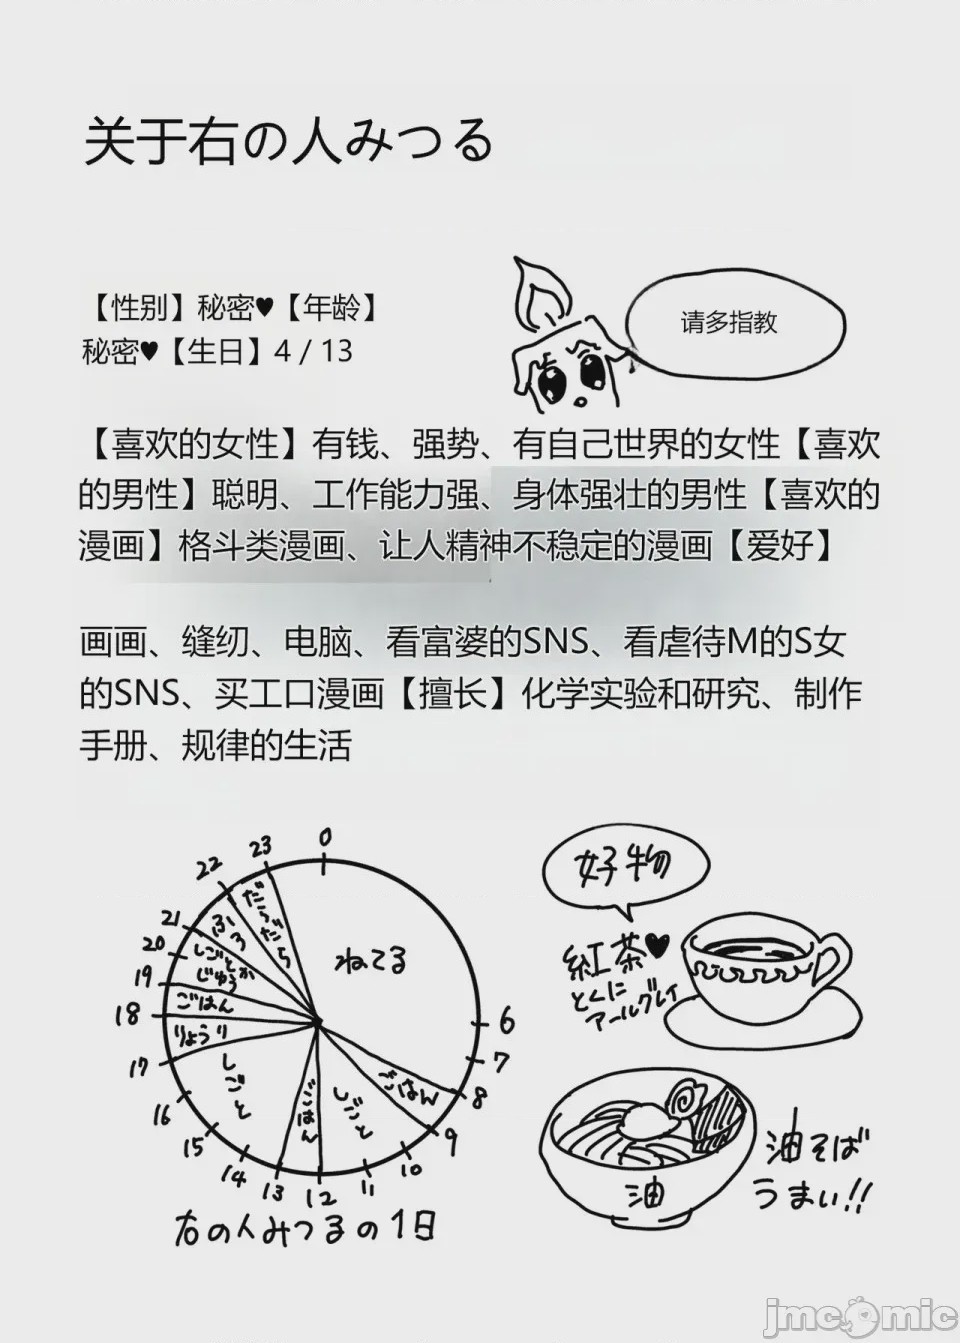 关于右の人みつる
【性别】秘密♥【年龄】
秘密♥【生日】4 / 13
请多指教
【喜欢的女性】有钱、强势、有自己世界的女性【喜欢
的男性】聪明、工作能力强、身体强壮的男性【喜欢的
漫画】格斗类漫画、让人精神不稳定的漫画【爱好】
画画、缝纫、电脑、看富婆的SNS、看虐待M的S女
的SNS、买工口漫画【擅长】化学实验和研究、制作
手册、规律的生活
0
ねてる
6
7
8
ごはん
9
しごと
10
11
12
ごはん
13
しごと
14
15
16
17
りょうり
18
ごはん
19
しごとか
じゆう
20
21
ふろ
22
だらだら
23
右の人みつるの1日
好物
紅茶♥
とくに
アールグレイ
油
油そば
うまい!!
jmcomic